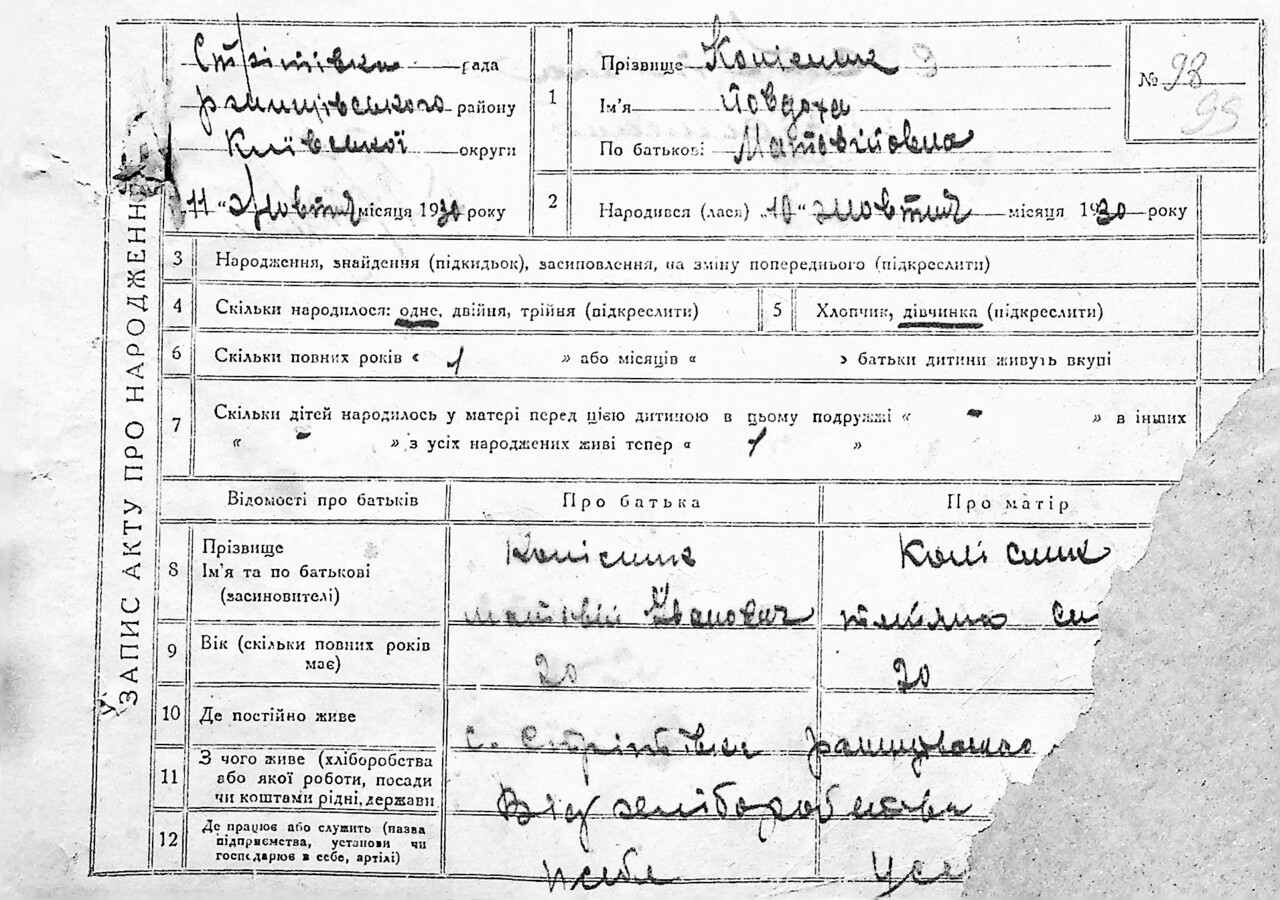 ЗАПИС АКТУ ПРО НАРОДЖЕНН
Стрітівка рада
Ржищівського району
Київської округи
„11“ Жовтня місяця 1930 року
1 Прізвище Колісник
Ім'я Йовдоха
По батькові Матовійовна
№ 98
95
2 Народився (лася) „10“ жовтня місяця 1930 року
3 Народження, знайдення (підкидьок), засиновлення, на зміну попереднього (підкреслити)
4 Скільки народилося: одне, двійня, трійня (підкреслити)
5 Хлопчик, дівчинка (підкреслити)
6 Скільки повних років « 1 » або місяців « » батьки дитини живуть вкупі
7 Скільки дітей народилось у матері перед цією дитиною в цьому подружжі « - » в інших
« - » з усіх народжених живі тепер « 1 »
Відомості про батьків Про батька Про матір
8 Прізвище
Ім'я та по батькові
(засиновителі)
Колісник Колісник
Матовій Іванович
9 Вік (скільки повних років
має)
20 20
10 Де постійно живе
с. Стрітівка
11 З чого живе (хліборобства
або якої роботи, посади
чи коштами рідні, держави
Від хліборобства
12 Де працює або служить (назва
підприємства, установи чи
господарює в себе, артілі)